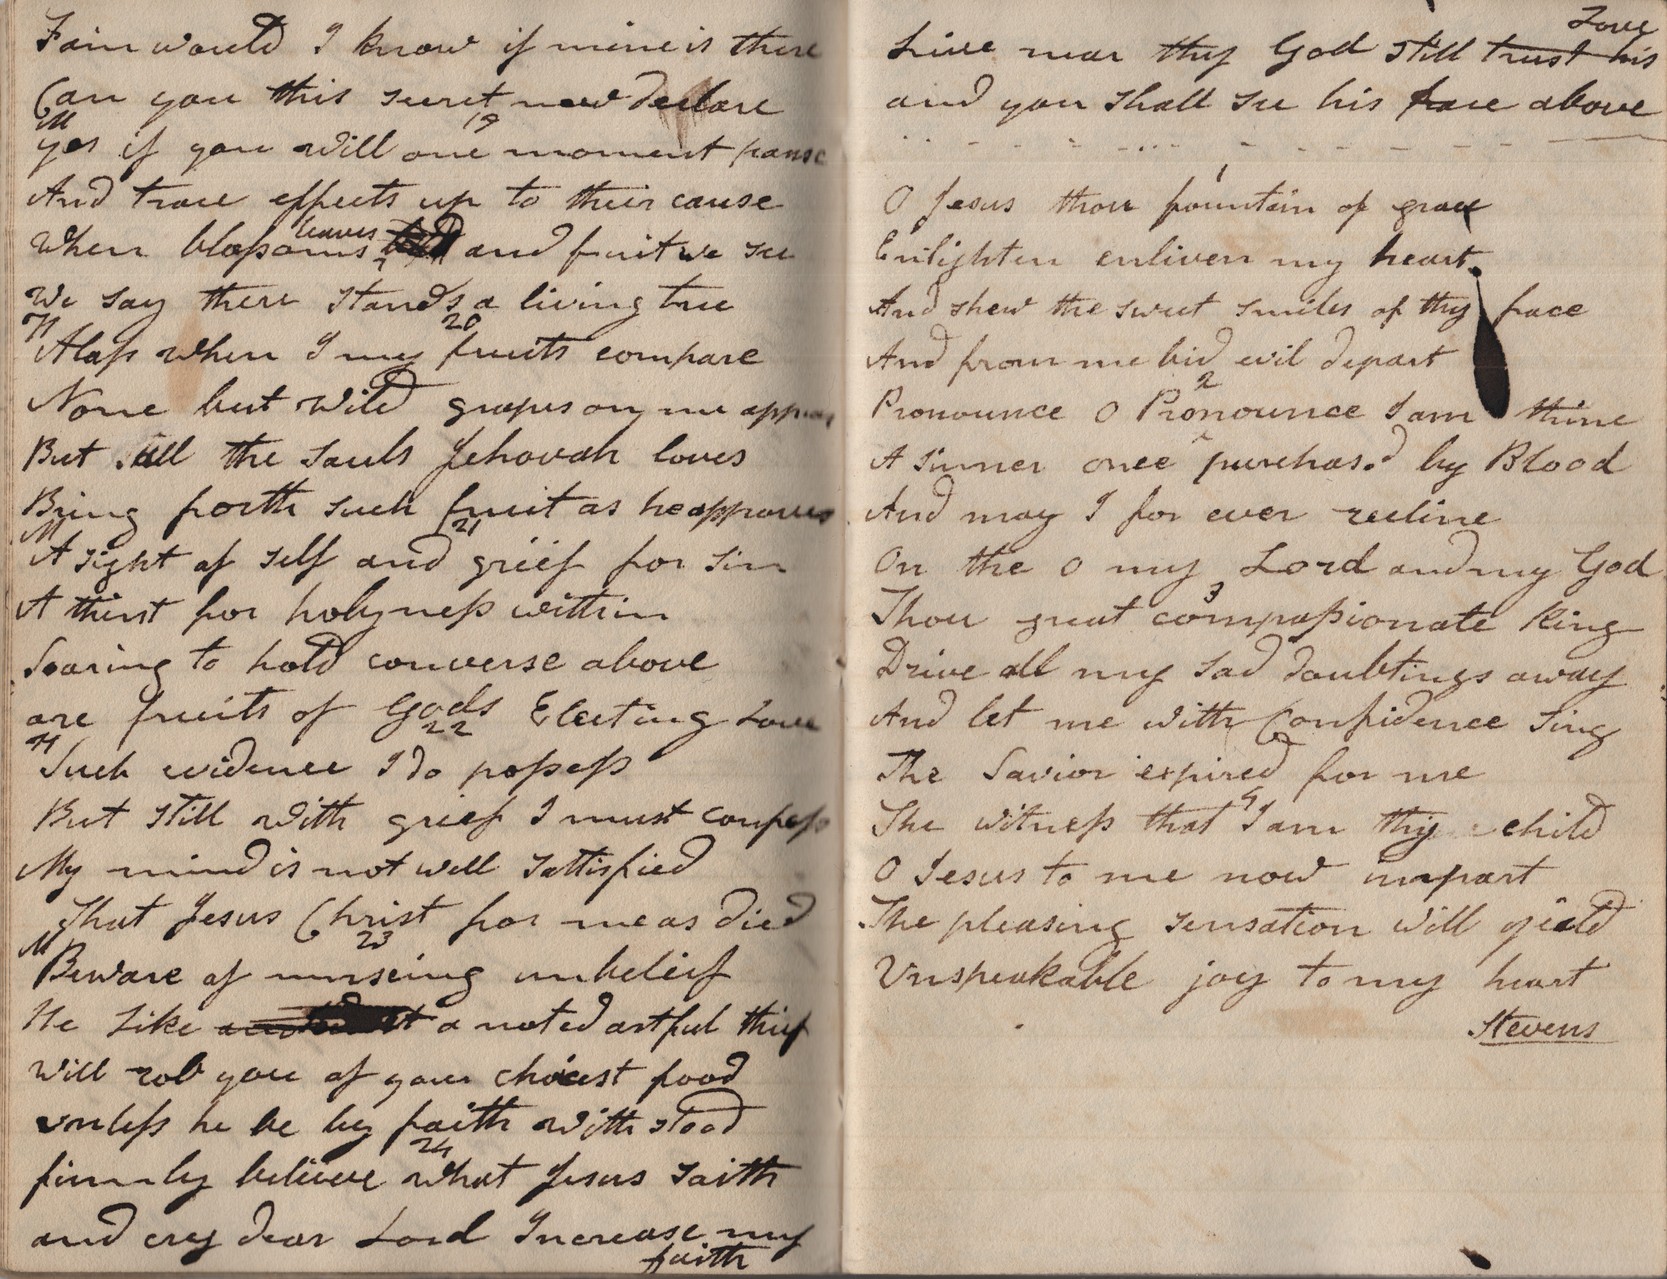 Fain would I know if mine is there
Can you this secret now declare
M 19
yes if you will one moment pause
And trace effects up to their cause
When blossoms leaves and fruit we see
We say there stands a living tree
H 20
Alass when I my fruits compare
None but wild grapes on me appear
But all the souls Jehovah loves
Bring forth such fruit as he approves
M 21
A sight of self and greif for sin
A thirst for holyness within
Soaring to hold converse above
are fruits of Gods Electing Love
H 22
Such evidence I do possess
But still with grief I must confess
My mind is not well sattisfied
That Jesus Christ for me as died
M 23
Beware of nurseing unbeleif
He Like a noted artful thief
Will rob you of your choicest food
unless he be by faith withstood
24
firmly believe what Jesus saith
and cry dear Lord Increase my
faith
Love
Live near thy God still trust his
and you shall see his face above
1
O Jesus thou fountain of grace
Enlighten enliven my heart
And shew the sweet smiles of thy face
And from me bid evil depart
2
Pronounce O Pronounce I am thine
A sinner once purchas.d by Blood
And may I for ever recline
On the O my Lord and my God
3
Thou great compassionate King
Drive all my sad doubtings away
And let me with Confidence sing
The Savior expired for me
4
The witness that I am thy child
O Jesus to me now impart
The pleasing sensation will yield
Unspeakable joy to my heart
Stevens